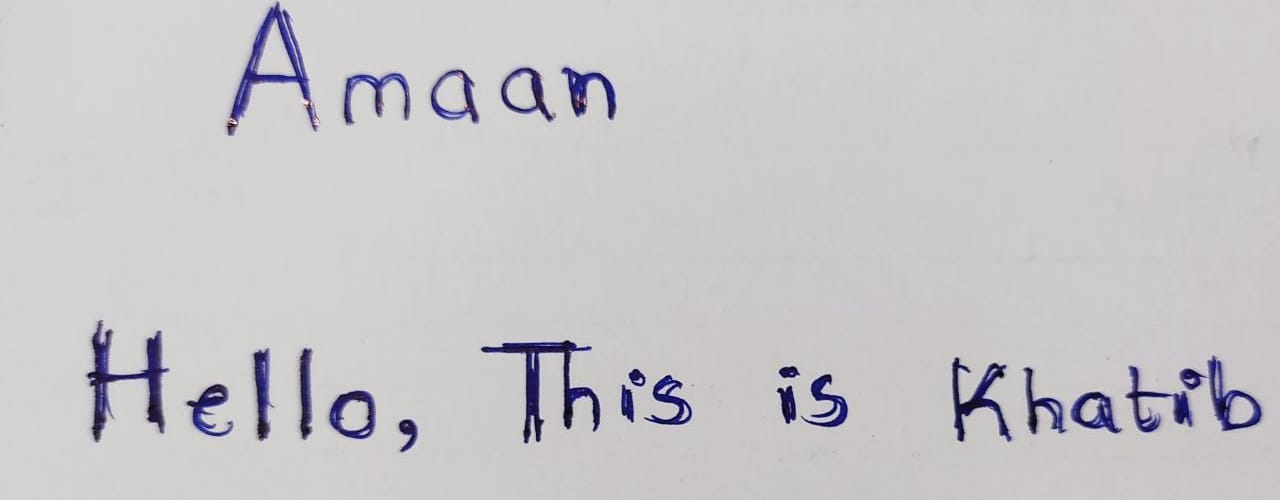 Amaan
Hello, This is Khatib